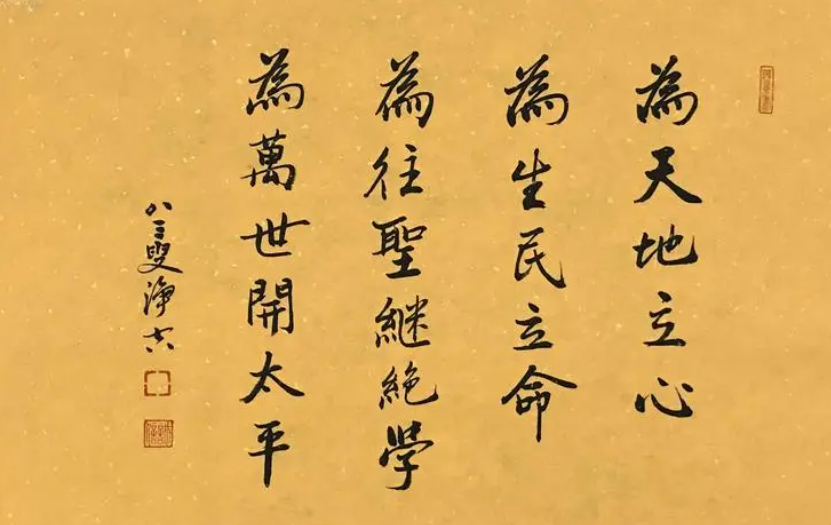 為天地立心
為生民立命
為往聖継絶学
為萬世開太平
八三叟浄空